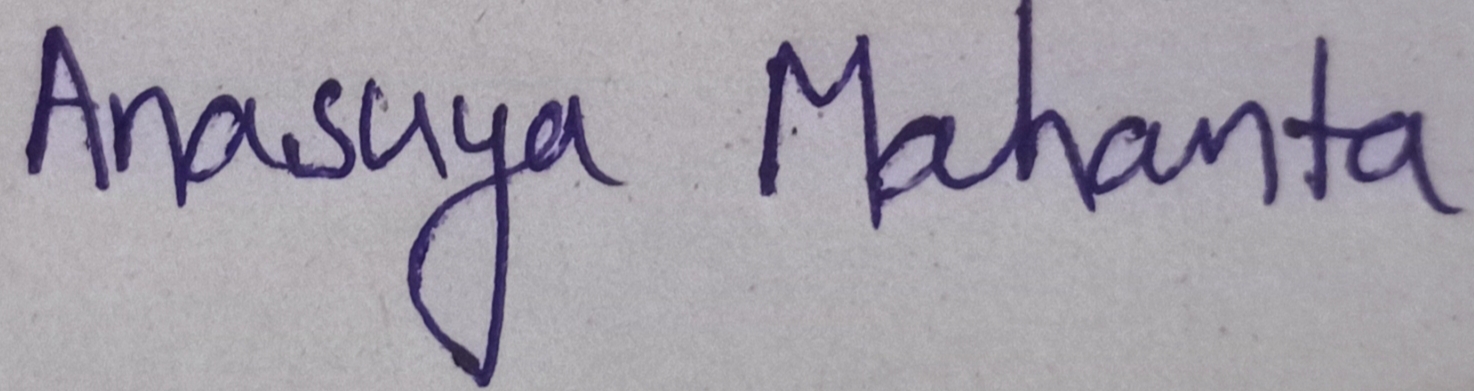 Anasuya Mahanta